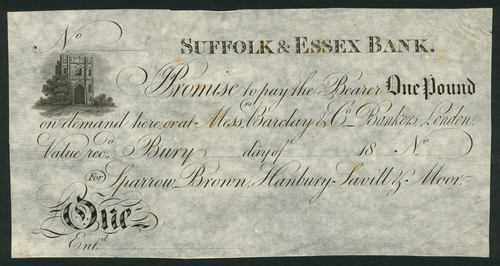 No
SUFFOLK & ESSEX BANK.
Promise to pay the Bearer One Pound
on demand here, or at Messrs Barclay & Co. Bankers, London.
Value recd. Bury day of 18 No
For Sparrow, Brown, Hanbury, Savill & Moor.
One
Entd.